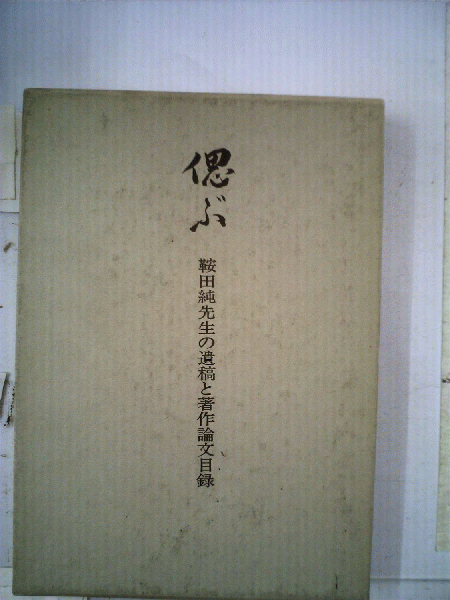 偲ぶ
鞍田純先生の遺稿と著作論文目録